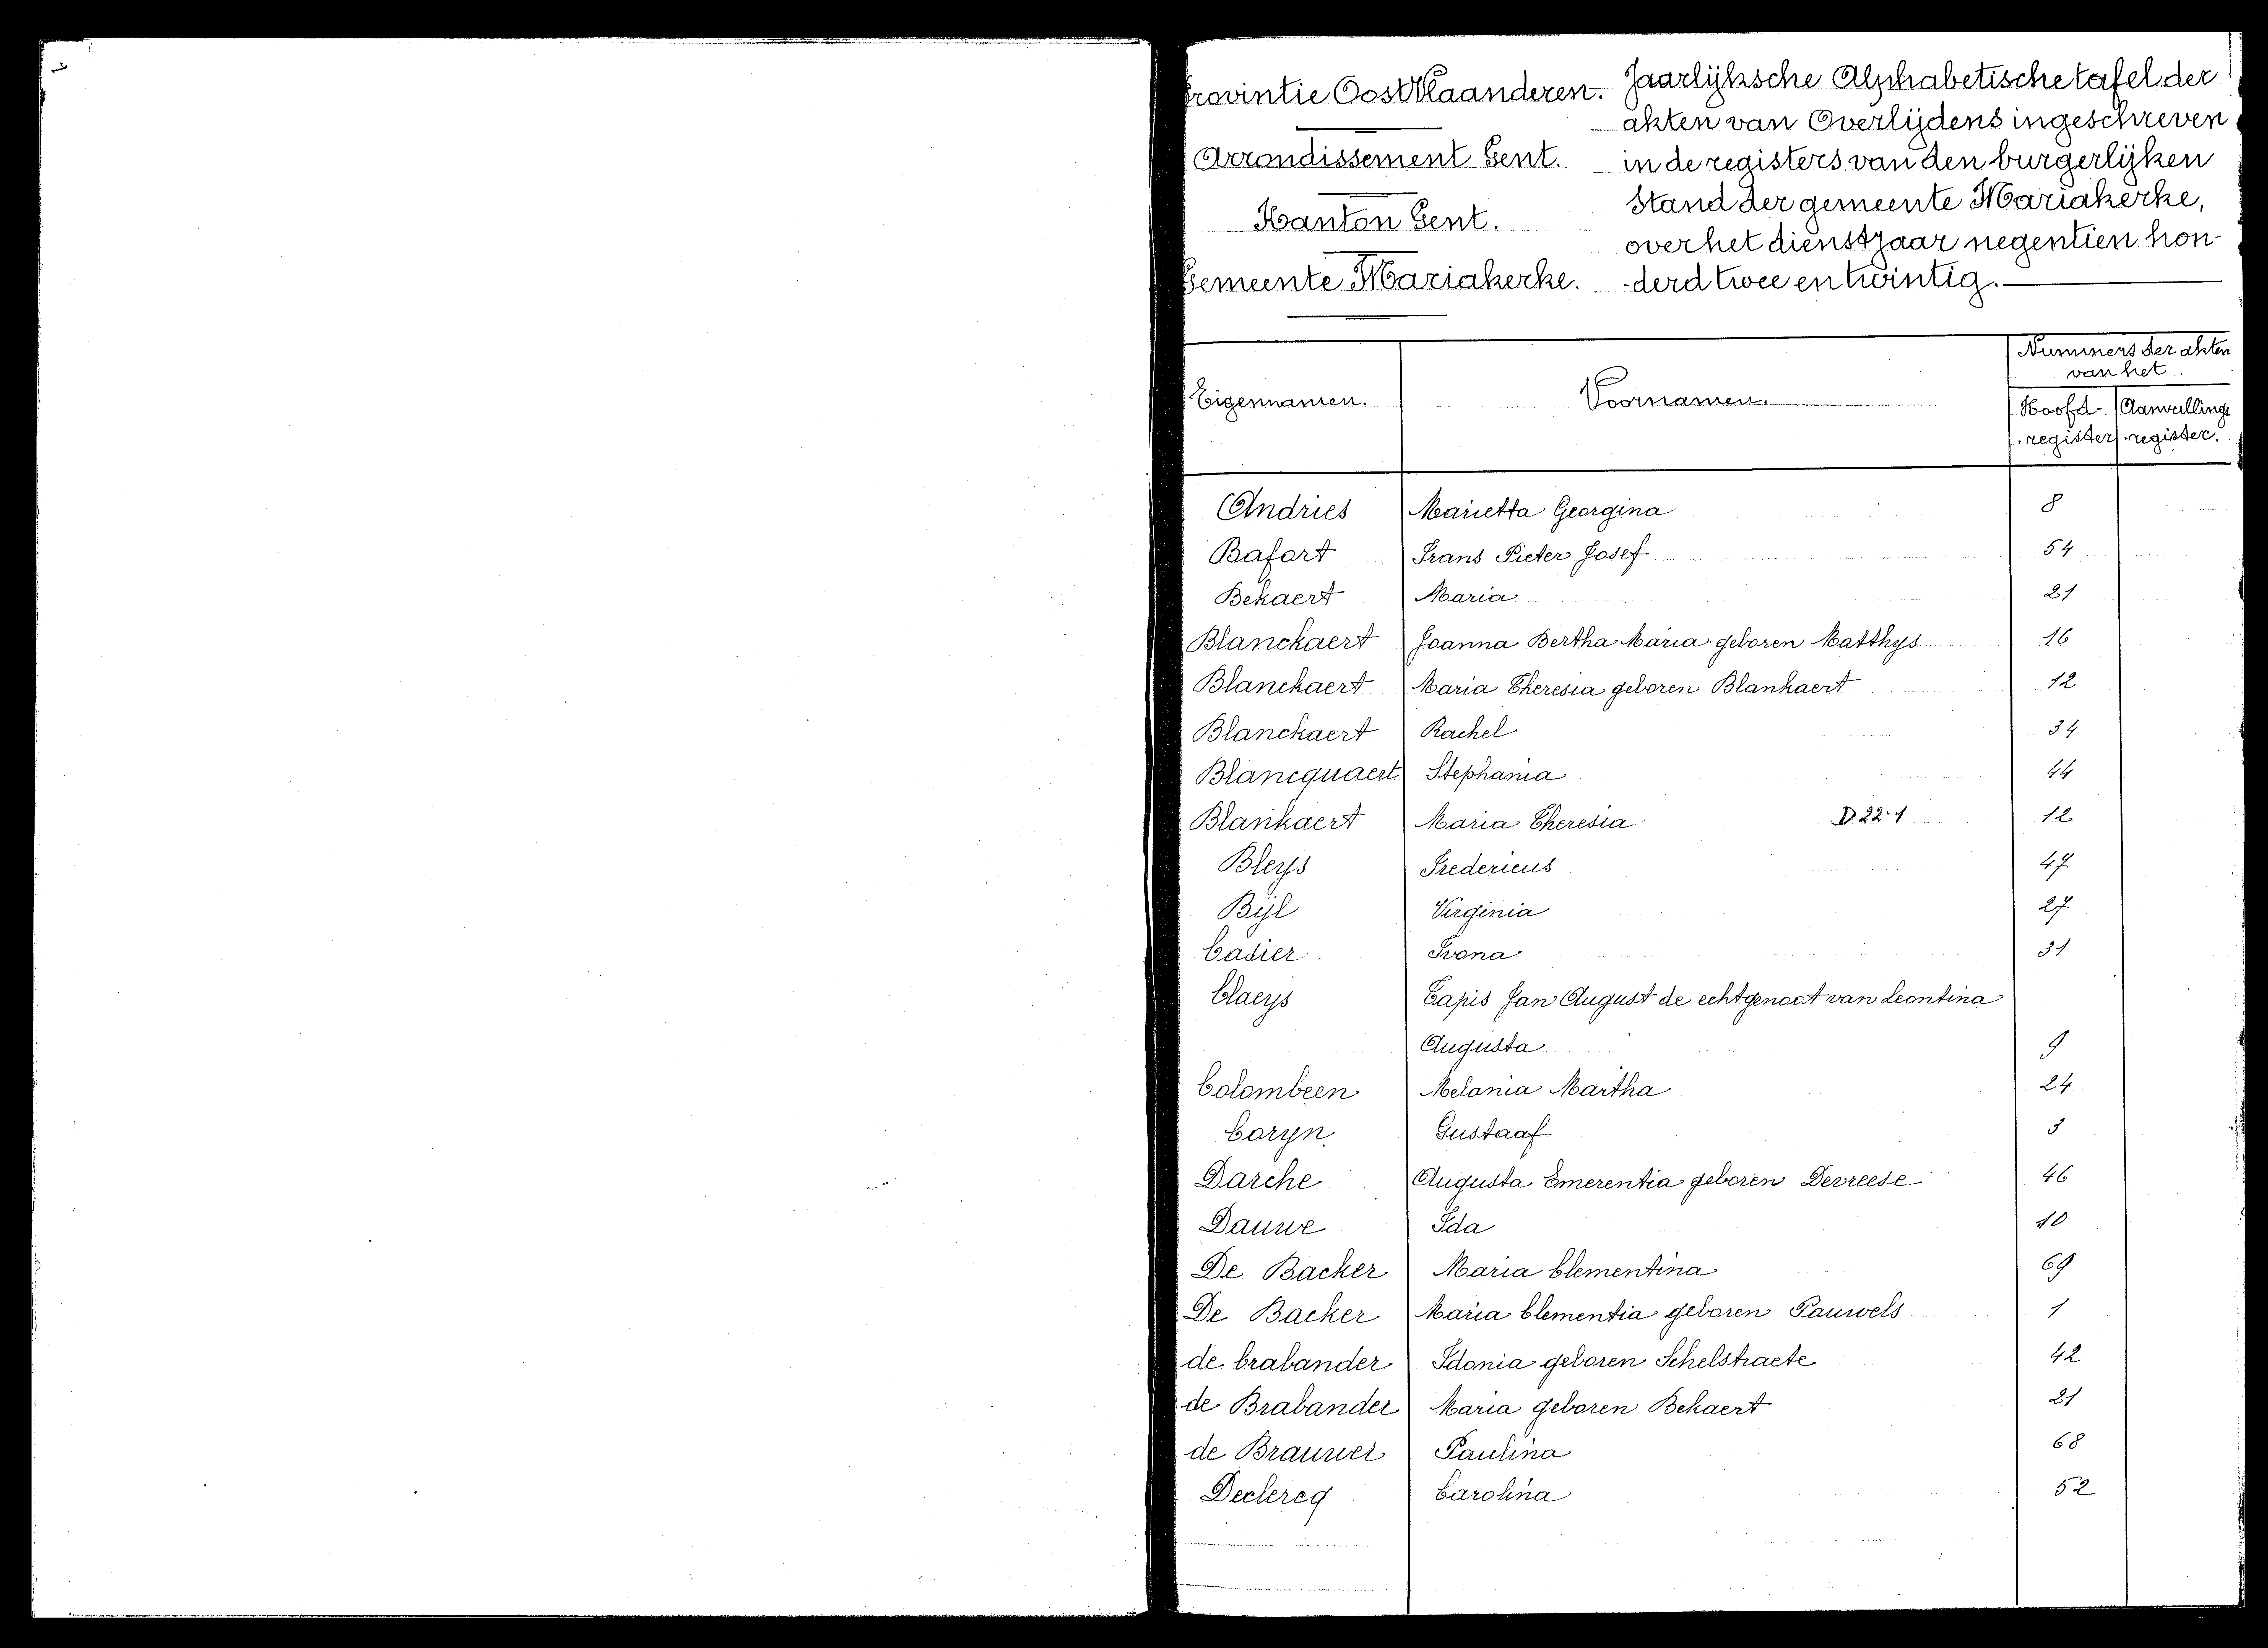 Provintie Oost Vlaanderen.
Arrondissement Gent.
Kanton Gent.
Gemeente Mariakerke.
Jaarlijksche Alphabetische tafel der
akten van Overlijdens ingeschreven
in de registers van den burgerlijken
stand der gemeente Mariakerke,
over het dienstjaar negentien hon-
-derd twee en twintig.
Eigennamen. Voornamen. Nummers der akten
van het
Hoofd- Aanvullings
-register -register.
Andries Marietta Georgina 8
Bafort Frans Pieter Josef 54
Bekaert Maria 21
Blanckaert Joanna Bertha Maria geboren Matthys 16
Blanckaert Maria Theresia geboren Blankaert 12
Blanckaert Rachel 34
Blancquaert Stephania 44
Blankaert Maria Theresia D 22-1 12
Bleys Fredericus 47
Bijl Virginia 27
Casier Ivona 31
Claeys Tapis Jan August de echtgenoot van Leontina
Augusta 9
Colombeen Melania Martha 24
Coryn Gustaaf 3
Darche Augusta Emerentia geboren Devreese 46
Dauwe Ida 10
De Backer Maria Clementina 69
De Backer Maria Clementia geboren Pauwels 1
de brabander Idonia geboren Schelstraete 42
de Brabander Maria geboren Bekaert 21
de Brauwer Paulina 68
Declercq Carolina 52